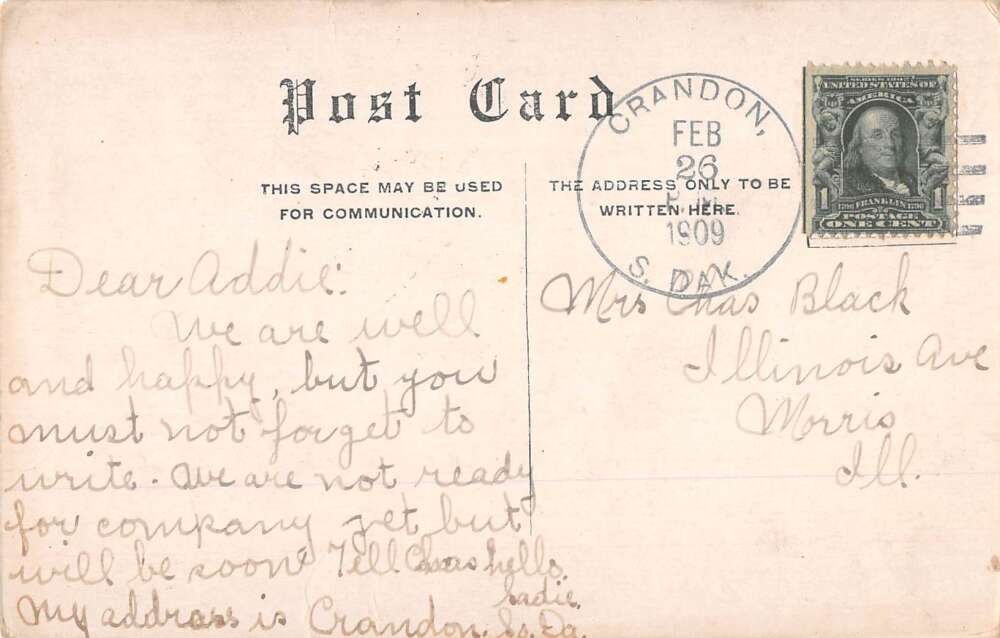 Post Card
THIS SPACE MAY BE USED
FOR COMMUNICATION.
THE ADDRESS ONLY TO BE
WRITTEN HERE.
CRANDON,
FEB
26
P.M.
1909
S. DAK.
SERIES 1902
UNITED STATES OF
AMERICA
1 1
1706 FRANKLIN 1790
POSTAGE
ONE CENT
Dear Addie:
We are well
and happy, but you
must not forget to
write. We are not ready
for company yet but
will be soon. Tell Chas hello.
Sadie.
My address is Crandon, So. Da.
Mrs Chas Black
Illinois Ave
Morris
Ill.